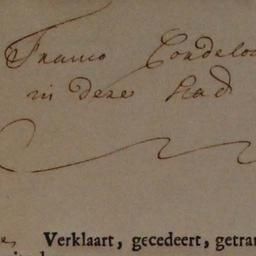 Franco Cordelo
in deze stad
Verklaart, gecedeert, getra